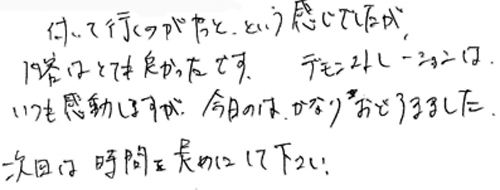 付いて行くのがやっと、という感じでしたが、
内容はとても良かったです。 デモンストレーションは、
いつも感動しますが、今日のは、かなりおどろきました。
次回は時間を長めにして下さい。